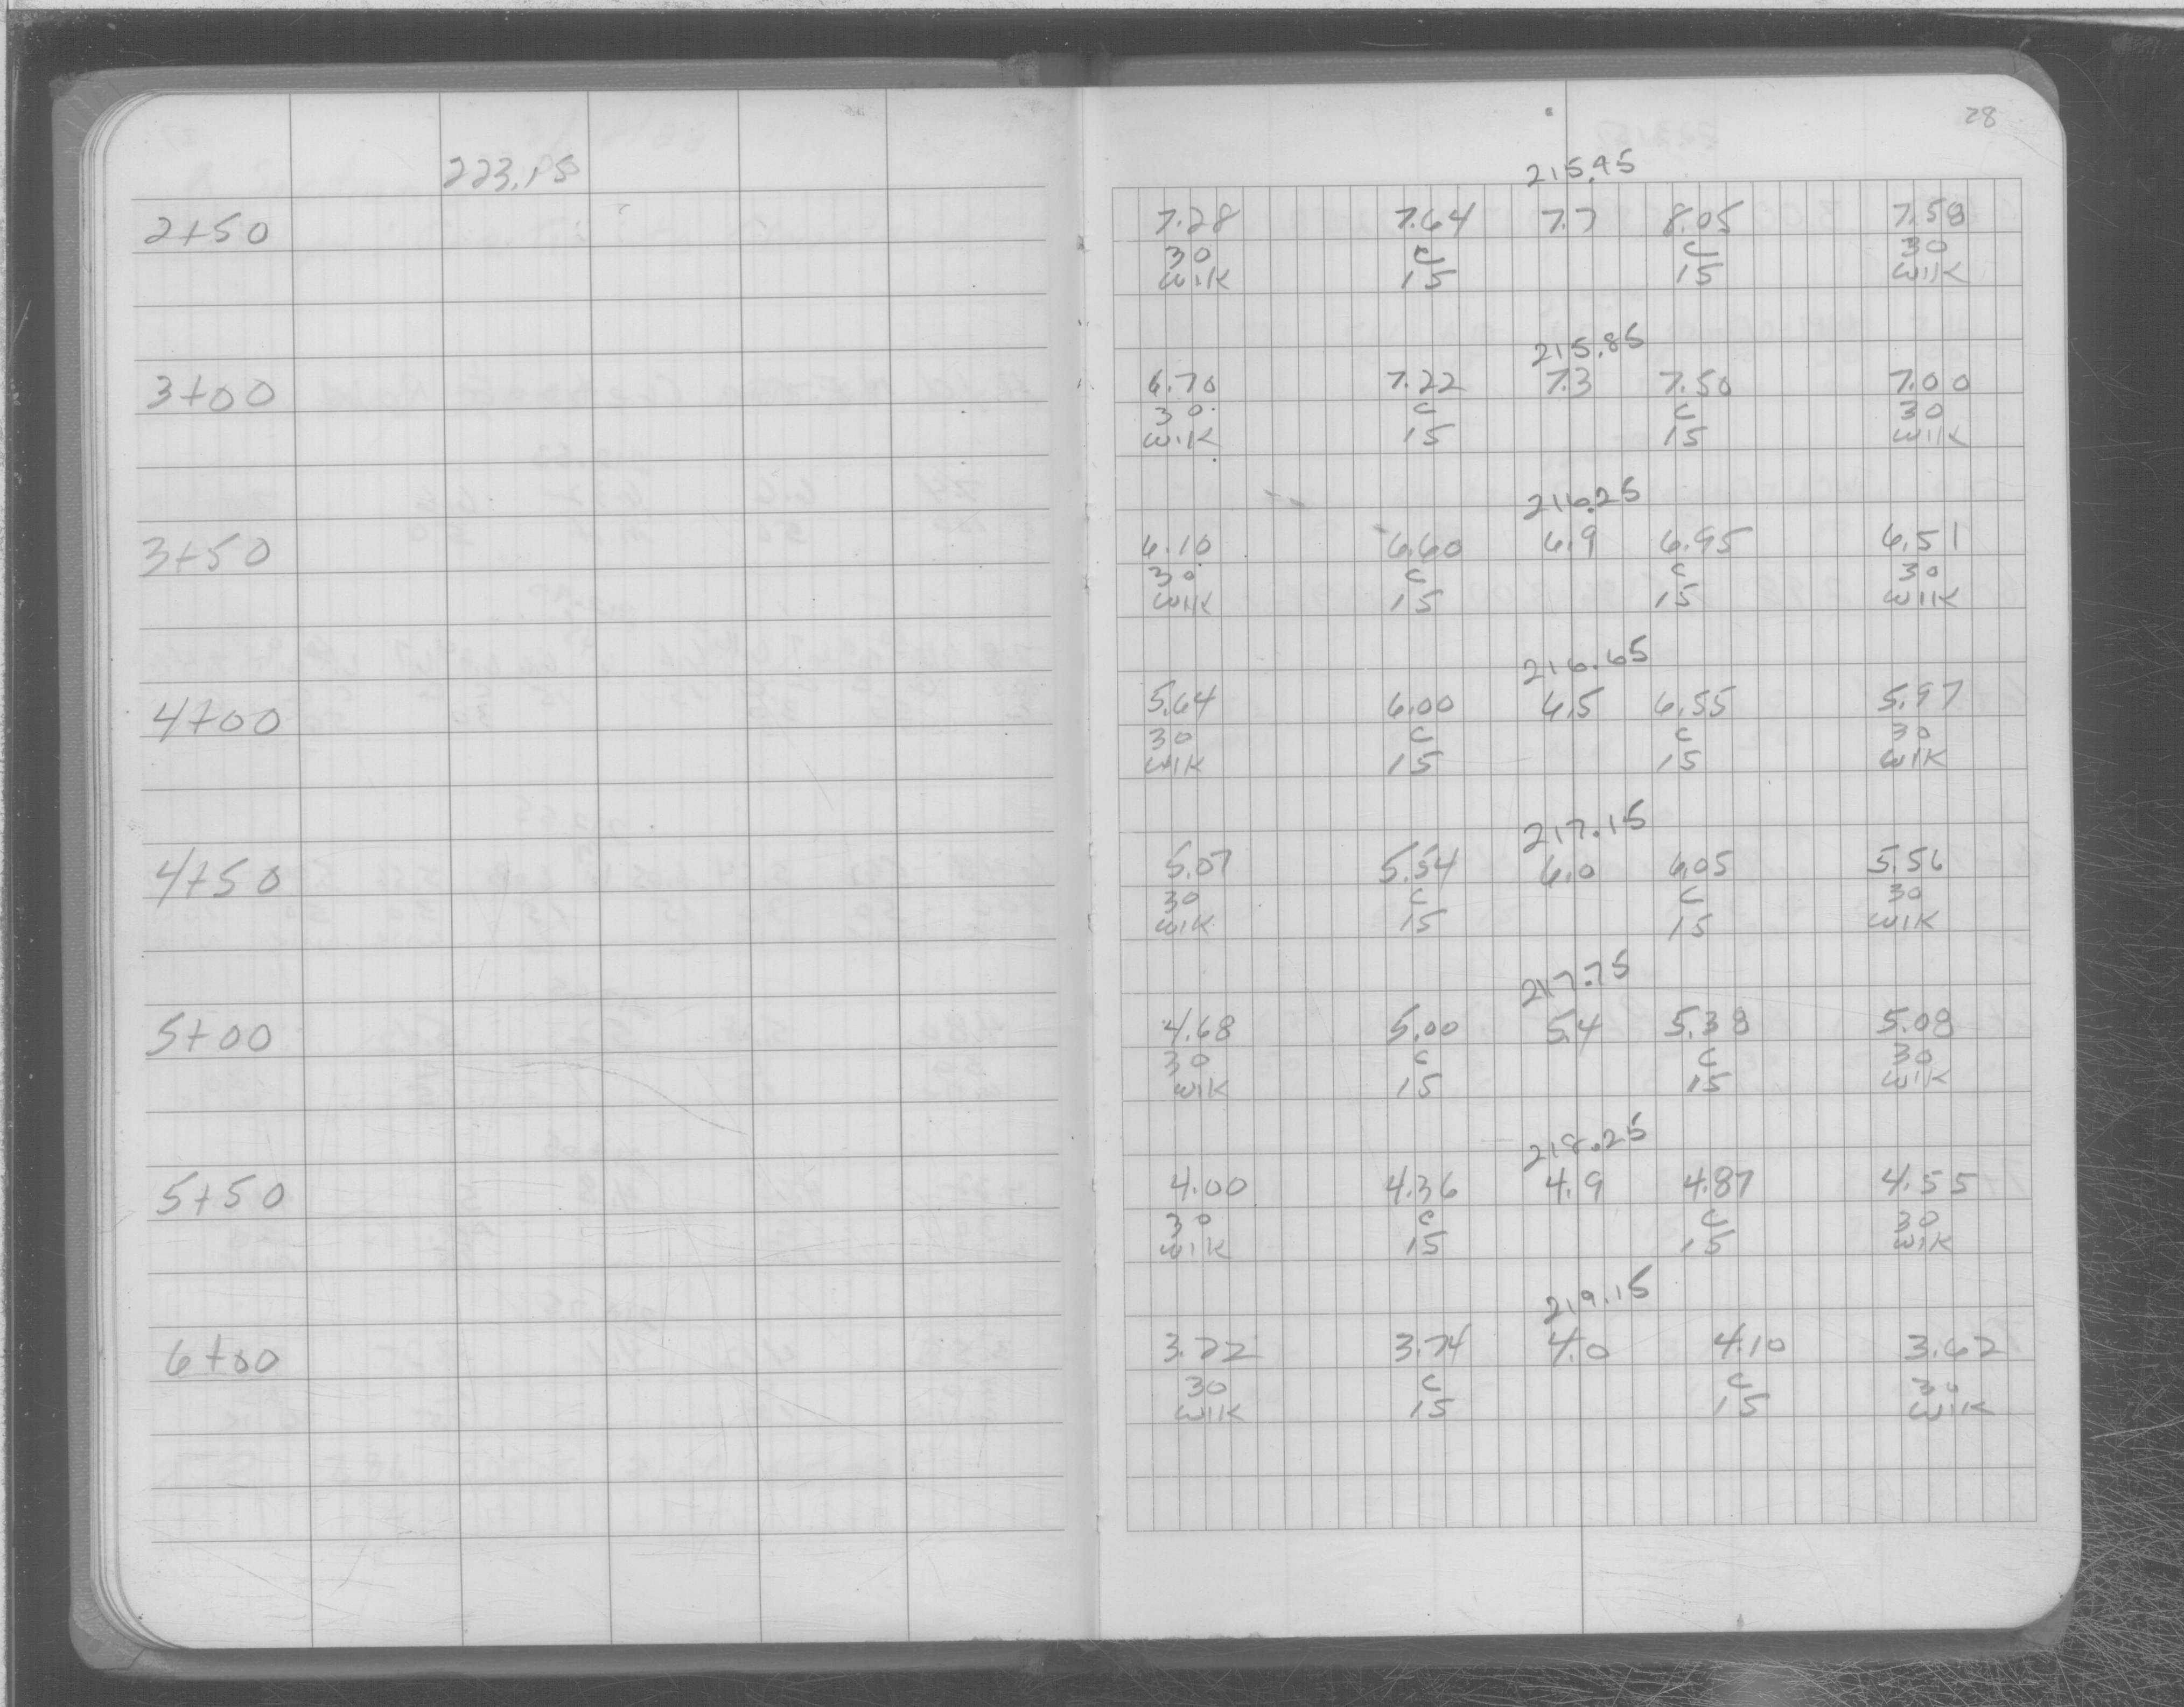 28
223.15
215.45
2+50 7.28 7.64 7.7 8.05 7.58
30 C C 30
WIK 15 15 WIK
215.85
3+00 6.70 7.22 7.3 7.50 7.00
30 C C 30
WIK 15 15 WIK
216.25
3+50 6.10 6.60 6.9 6.95 6.51
30 C C 30
WIK 15 15 WIK
216.65
4+00 5.64 6.00 6.5 6.55 5.97
30 C C 30
WIK 15 15 WIK
217.15
4+50 5.07 5.54 6.0 6.05 5.56
30 C C 30
WIK 15 15 WIK
217.75
5+00 4.68 5.00 5.4 5.38 5.08
30 C C 30
WIK 15 15 WIK
218.25
5+50 4.00 4.36 4.9 4.87 4.55
30 C C 30
WIK 15 15 WIK
219.15
6+00 3.22 3.74 4.0 4.10 3.62
30 C C 30
WIK 15 15 WIK